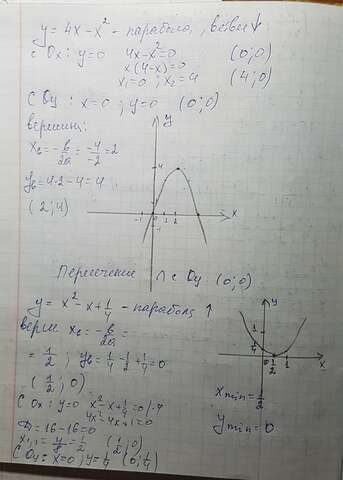 y = 4x - x² - парабола, ветви ↓
с Ox: y=0 4x-x²=0 (0;0)
x(4-x)=0
x₁=0; x₂=4 (4;0)
С Oy: x=0; y=0 (0;0)
вершины:
x_в = -b/2a = -4/-2 = 2
y_в = 4·2 - 4 = 4
(2; 4)
y
4
-1 0 1 2 x
-1
Пересечение ∩ с Oy (0;0)
y = x² - x + 1/4 - парабола ↑
верш x_в = -b/2a =
= 1/2; y_в = 1/4 - 1/2 + 1/4 = 0
(1/2; 0)
С Ox: y=0 x²-x+1/4=0 |·4
4x²-4x+1=0
D=16-16=0
x₁,₂ = 4/8 = 1/2 (1/2; 0)
С Oy: x=0; y=1/4 (0; 1/4)
y
1
0 1/2 1 x
x min = 1/2
y min = 0